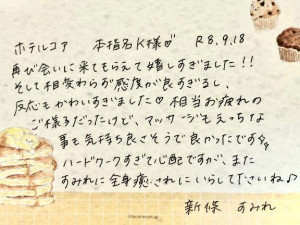 ホテルコア　本指名K様♡　R8.9.18
再び会いに来てもらえて嬉しすぎました!!
そして相変わらず感度が良すぎるし、
反応もかわいすぎました♡ 相当お疲れの
ご様子だったけど、マッサージもえっちな
事も気持ち良さそうで良かったです
ハードワークすぎて心配ですが、また
すみれに全身癒されにいらしてくださいね♪
新條　すみれ